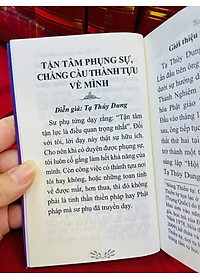 TẬN TÂM PHỤNG SỰ,
CHẲNG CẦU THÀNH TỰU
VỀ MÌNH
Diễn giả: Tạ Thúy Dung
Sư phụ từng dạy rằng: “Tận tâm
tận lực là điều quan trọng nhất”. Đối
với tôi, lời dạy này thật sự hữu ích.
Cho nên khi có duyên được phụng sự,
tôi luôn cố gắng làm hết khả năng của
mình. Còn công việc có thành tựu nơi
tôi hay không, hoặc những toan tính
về được mất, hơn thua, thì đó không
phải là tinh thần thiền pháp hay Phật
pháp mà sư phụ đã truyền dạy.
Giới thiệu
Tạ Thúy Dung
Lần đầu tiên ông
từ
Thánh Nghiêm
hóa Phật giáo
sáng lập “Hội
Tạ Thúy